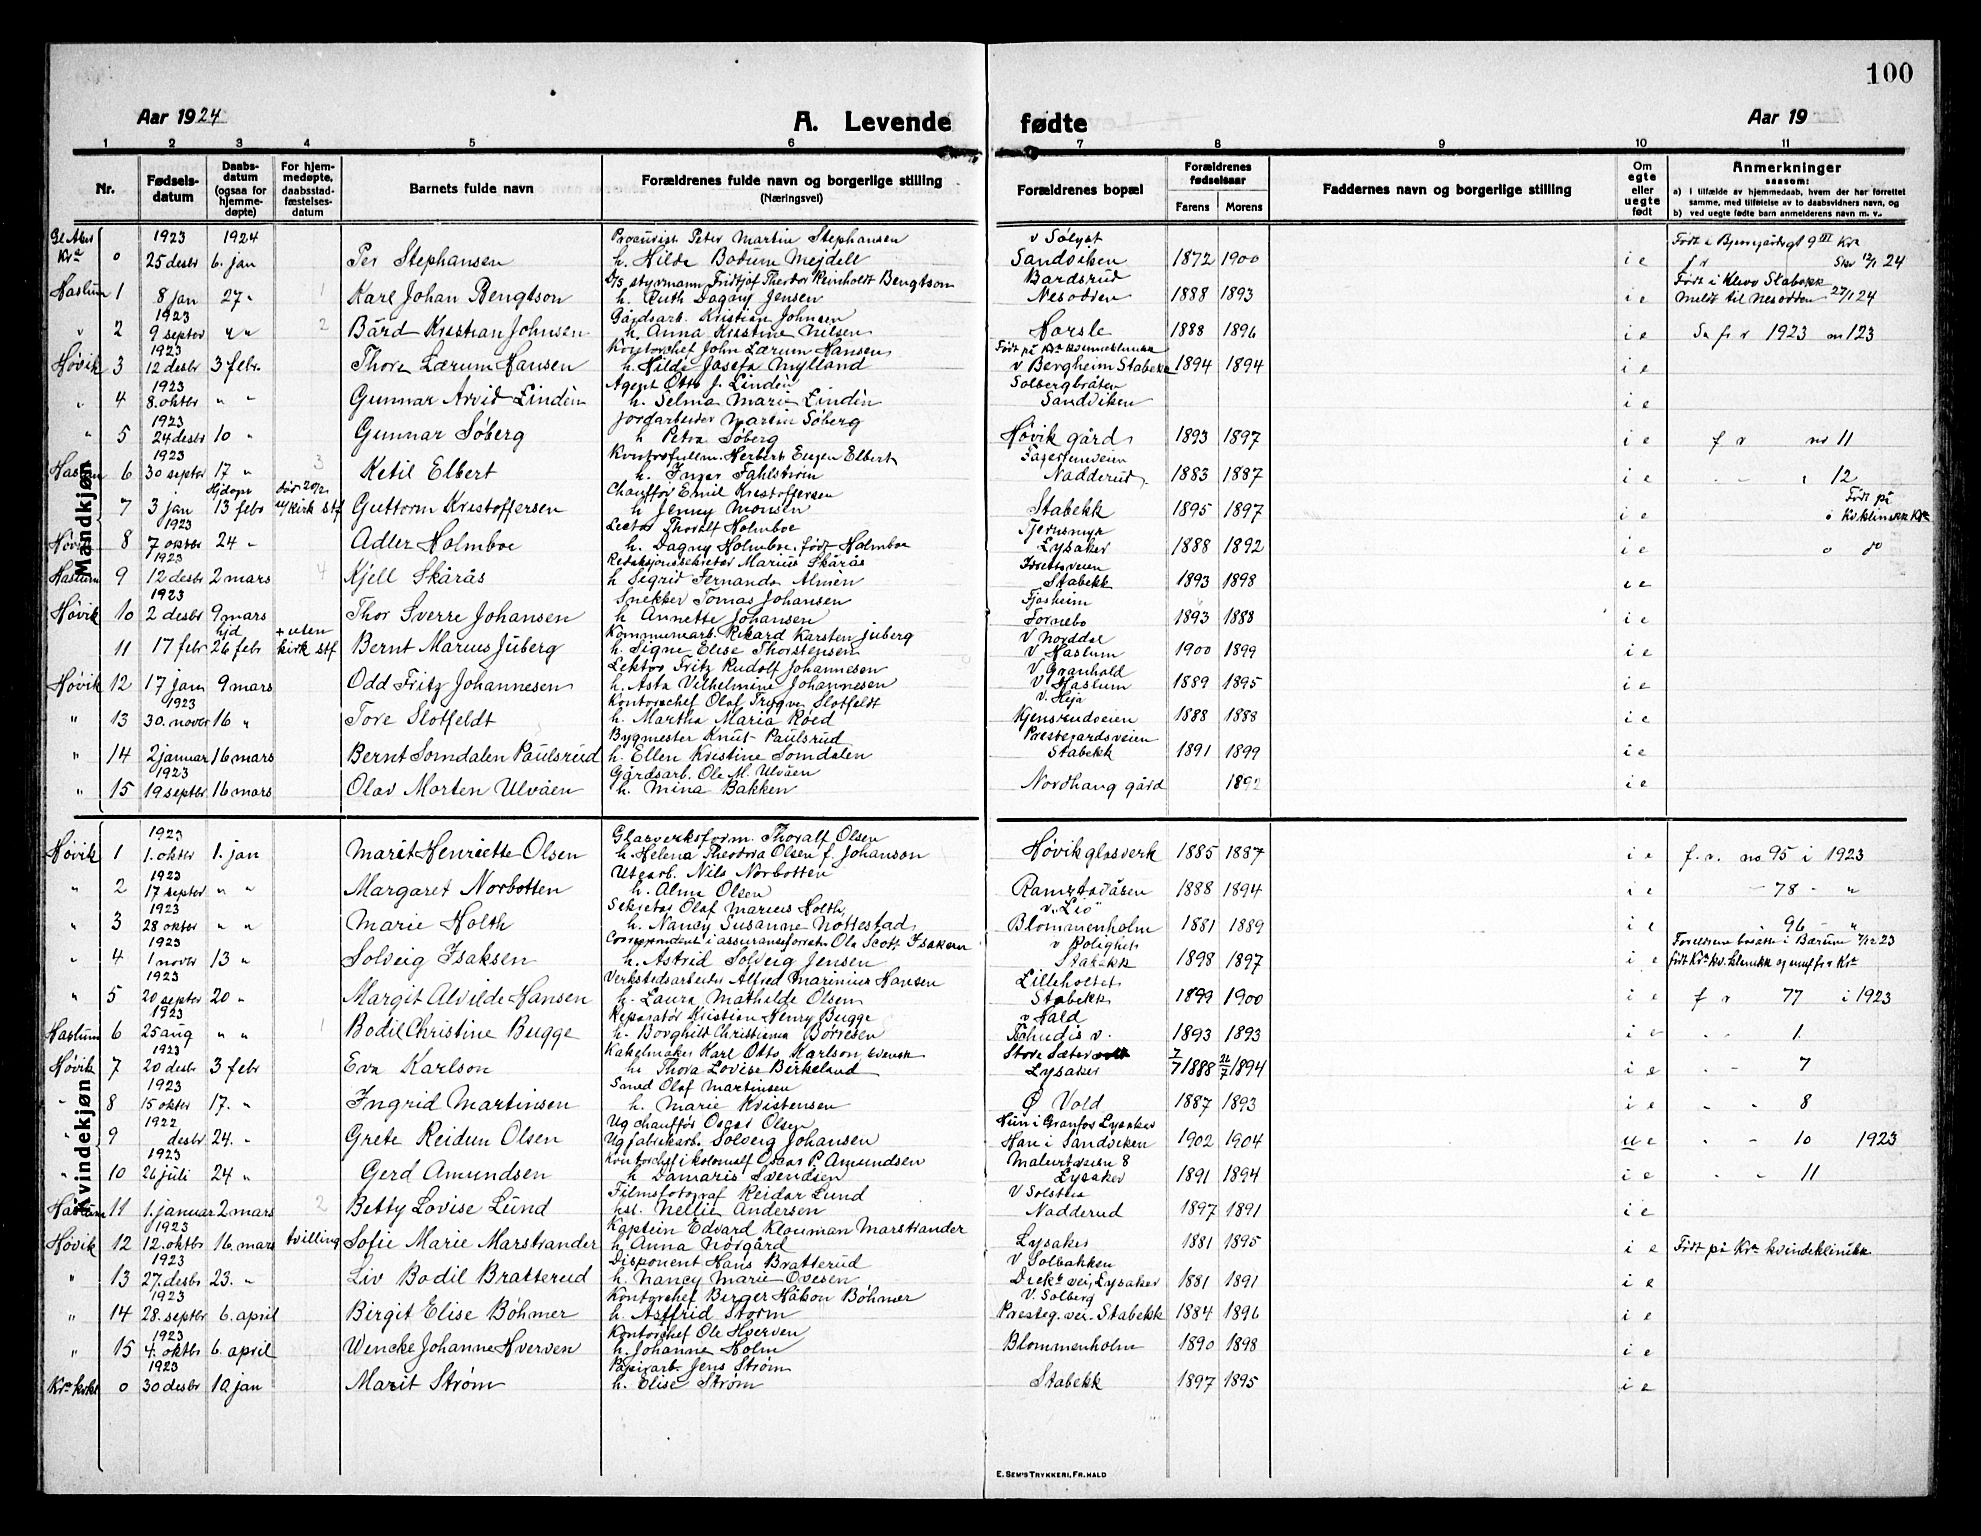 100
Aar 1924
A. Levende fødte
Aar 19
1 2 3 4 5 6 7 8 9 10 11
Nr.
Fødselsdatum
Daabsdatum (ogsaa for hjemmedøpte)
For hjemmedøpte, daabsstadfæstelsesdatum
Barnets fulde navn
Forældrenes fulde navn og borgerlige stilling (Næringsvei)
Forældrenes bopæl
Forældrenes fødselsaar
Farens Morens
Faddernes navn og borgerlige stilling
Om egte eller uegte født
Anmerkninger
saasom:
a) i tilfælde av hjemmedaab, hvem der har forrettet samme, med tilføielse av to daabsvidners navn, og
b) ved uegte fødte barn anmelderens navn m. v.
Mandkjøn
1923 1924 Procurist Peter Martin Stephansen
Kra 0 25 desbr 6. jan Per Stephansen h. Hilda Bodum Mejdell Sandviken 1872 1900 i e
Haslum 1 8 jan 27 " 1 Karl Johan Bengtson styrmann Fridtjof Theodor Reinholdt Bengtson
h. Ruth Dagny Jensen Bardsrud Nesodden 1888 1893 i e Født i Klevo Stabekk
Meldt til Nesodden 27/1 24
1923 Gårdsarb. Kristian Johnsen
" 2 9 septbr " " 2 Bård Kristian Johnsen h. Anna Kristine Nilsen Horsle 1888 1896 i e Se f r 1923 nr 123
1923 Kontorchef John Lærum Hansen Født på Kra kvinneklinikk
Høvik 3 12 desbr 3 febr. Thore Lærum Hansen h. Hilda Josefa Mylland v Bergheim Stabekk 1894 1894 i e
1923 Agent Otto J. Lindén Solbergbråten
" 4 8. oktbr " " Gunnar Arvid Lindén h. Selma Marie Lindén Sandviken i e
1923 Jordarbeider Martin Søberg
" 5 24 desbr 10 " Gunnar Søberg h Petra Søberg Høvik gård 1893 1897 i e f r nr 11
1923 Kontorfullm. Herbert Eugen Elbert
Haslum 6 30 septbr 17 " 3 Ketil Elbert h. Inger Fahlstrøm Nadderud 1883 1887 i e 12
Chauffør Emil Kristoffersen
7 3 jan 13 febr Guttorm Kristoffersen h Jenny Monsen Stabekk 1895 1897 i e Født på
1923 Lector Thoralf Holmboe
Høvik 8 7 oktbr 24 " Adler Holmboe h. Dagny Holmboe, født Holmboe Lysaker 1888 1892 i e
1923 Redaksjonssekretær Marius Skårås
Haslum 9 12 desbr 2 mars 4 Kjell Skårås h Sigrid Fernanda Almén Stabekk 1893 1898 i e
1923 Snekker Tomas Johansen Fjosheim
Høvik 10 2 desbr 9 mars Thor Sverre Johansen h Annette Johansen Fornebo 1893 1888 i e
hjd + uten Kommunearb. Rikard Karsten Juberg v Norddal
11 17 febr 26 febr kirk stf Bernt Marius Juberg h. Signe Elise Thorstensen v Haslum 1900 1899 i e
Lektor Fritz Rudolf Johannesen v Granhold
Høvik 12 17 jan 9 mars Odd Fritz Johannesen h. Asta Vilhelmine Johannesen v Haslum 1889 1895 i e
1923 Kontorchef Olaf Trygve Slotfeldt v. Heja
" 13 30. novbr 16 " Tore Slotfeldt h. Martha Maria Røed Kjensrudveien 1888 1888 i e
Bygmester Knut Paulsrud Prestegardsveien
" 14 2 januar 16 mars Bernt Somdalen Paulsrud h. Ellen Kristine Somdalen Stabekk 1891 1899 i e
1923 Gårdsarb. Ole M. Ulvåen
" 15 19 septbr 16 mars Olav Morten Ulvåen h. Mina Bakken Nordhaug gård 1892 i e
Kvindekjøn
1923 Glasverksform. Thoralf Olsen
Høvik 1 1. oktbr 1. jan Marit Henriette Olsen h. Helena Theodora Olsen f. Johanson Høvik glasverk 1885 1887 i e f. r. no 95 i 1923
1923 Utearb. Nils Norbotten
" 2 17 septbr " " Margaret Norbotten h. Alma Olsen Ramstadåsen 1888 1894 i e - 78 - "
1923 Sekretær Olaf Marius Holth v. "Liö"
" 3 28 oktbr " " Marie Holth h. Nancy Susanne Nottestad Blommenholm 1881 1889 i e 96 - "
1923 Correspondent i assuranseforretn. Ole Scott Isaksen v Bolighet Foreldrene bosatte i Bærum
" 4 1 novbr 13 " Solveig Isaksen h. Astrid Solveig Jensen Stabekk 1898 1897 i e
1923 Verkstedsarbeider Alfred Marinius Hansen Lilleholtet
" 5 20 septbr 20 " Margit Alvilde Hansen h. Laura Mathilde Olsen Stabekk 1899 1900 i e f r 77 i 1923
1923 Reparatør Kristian Henry Bugge v Hald
Haslum 6 25 aug " " 1 Bodil Christine Bugge h. Borghild Christiania Børresen Tschudis v. 1893 1893 i e - - 1.
1923 Kakelmaker Karl Otto Karlson, svensk
Høvik 7 20 desbr 3 febr Eva Karlson h. Thora Lovise Birkeland Lysaker 1888 1894 i e - - 7
1923 Smed Olaf Martinsen
" 8 15 oktbr 17. " Ingrid Martinsen h. Marie Kristensen Ø Vold 1887 1893 i e - - 8
1922 Ug chauffør Oscar Olsen Hun i Granfos Lysaker
" 9 desbr 24. " Grete Reidun Olsen Ug fabrikarb. Solveig Johansen Han i Sandviken 1902 1904 u e - - 10 1923
1923 Kontorchef i kolonialf Oscar P. Amundsen Malurtveien 8
" 10 26 juli 24 " Gerd Amundsen h Damaris Svendsen Lysaker 1891 1894 i e - - 11
Filmsfotograf Reidar Lund V Solstua
Haslum 11 1. januar 2 mars 2 Betty Lovise Lund hst. Nellie Andersen Nadderud 1897 1891 i e
1923 Kaptein Edvard Klouman Marstrander
Høvik 12 12. oktbr 16. mars tvilling Sofie Marie Marstrander h. Anna Nörgård Lysaker 1881 1895 i e Født på Kra kvindeklinikk
1923 Disponent Hans Bratterud V Solbakken
" 13 27. desbr 23. " Liv Bodil Bratterud h. Nancy Marie Ovesen vei, Lysaker 1881 1891 i e
1923 Kontorchef Berger Håkon Böhmer V. Solberg
" 14 28. septbr 6. april Birgit Elise Böhmer h. Astfrid Storm Presteg. vei. Stabekk 1884 1896 i e
1923 Kontorchef Ole Hverven
" 15 4. oktbr 6. april Wencke Johanne Hverven h. Johanne Holm Blommenholm 1890 1898 i e
1923 Papirarb. Jens Strøm
0 30 desbr 10 jan Marit Strøm h. Elise Strøm Stabekk 1897 1895 i e
E. SEM'S TRYKKERI, FR.HALD